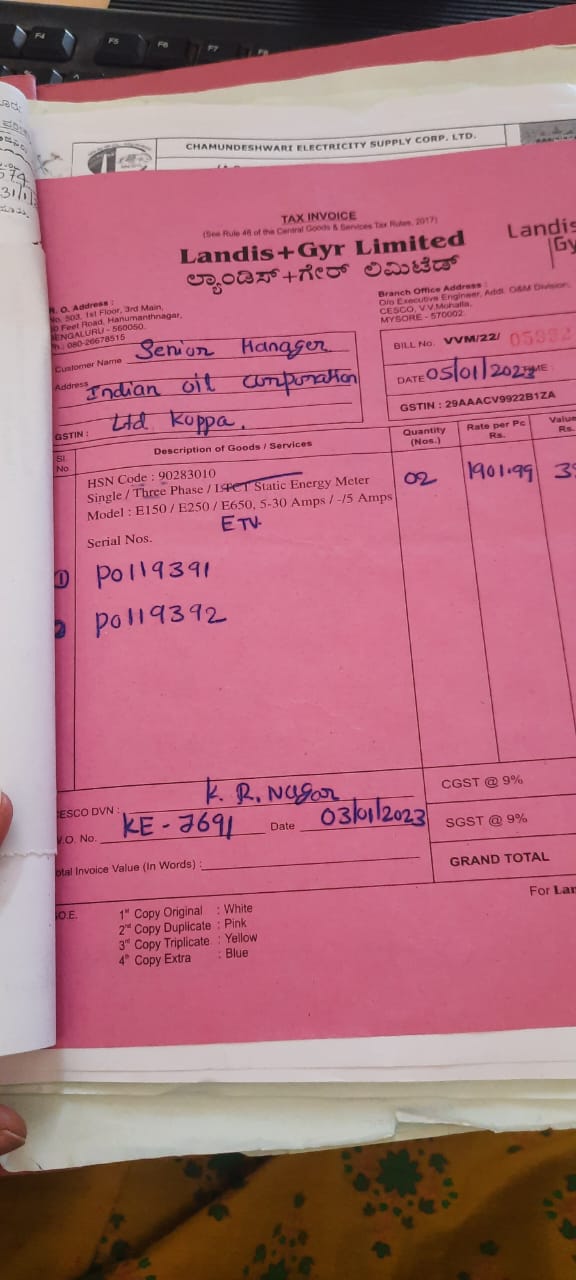 F4 F5 F6 F7 F8
CHAMUNDESHWARI ELECTRICITY SUPPLY CORP. LTD.
TAX INVOICE
(See Rule 46 of the Central Goods & Services Tax Rules, 2017)
Landis+Gyr Limited
ಲ್ಯಾಂಡಿಸ್+ಗೇರ್ ಲಿಮಿಟೆಡ್
Landis
Gy
R. O. Address :
No. 503, 1st Floor, 3rd Main,
0 Feet Road, Hanumanthnagar,
BENGALURU - 560050.
Ph.: 080-26678515
Branch Office Address :
O/o Executive Engineer, Addl. O&M Division,
CESCO, V.V.Mohalla,
MYSORE - 570002
Customer Name Senior Manager
Address Indian oil corporation
Ltd Koppa.
GSTIN :
BILL No. VVM/22/
DATE 05/01/2023 TIME :
GSTIN : 29AAACV9922B1ZA
Sl. No Description of Goods / Services Quantity (Nos.) Rate per Pc Rs. Value Rs.
HSN Code : 90283010
Single / Three Phase / LTCT Static Energy Meter 02 1901.99 3
Model : E150 / E250 / E650, 5-30 Amps / -/5 Amps
ETV.
Serial Nos.
1 P0119391
2 P0119392
CESCO DVN : K. R. Nagar
W.O. No. KE-7691 Date 03/01/2023
Total Invoice Value (In Words) :
CGST @ 9%
SGST @ 9%
GRAND TOTAL
For Lan
.O.E.
1st Copy Original : White
2nd Copy Duplicate : Pink
3rd Copy Triplicate : Yellow
4th Copy Extra : Blue